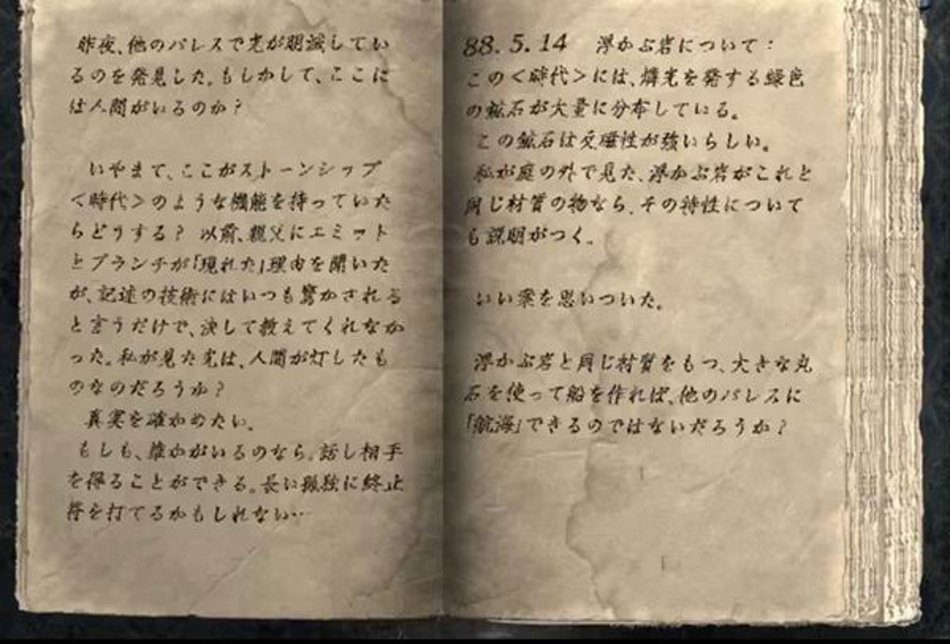 昨夜、他のパレスで光が明滅してい
るのを発見した。もしかして、ここに
は人間がいるのか？
いやまて、ここがストーンシップ
＜時代＞のような機能を持っていた
らどうする？ 以前、親父にエミット
とブランチが「現れた」理由を聞いた
が、記述の技術にはいつも驚かされる
と言うだけで、決して教えてくれなか
った。私が見た光は、人間が灯したも
のなのだろうか？
真実を確かめたい。
もしも、誰かがいるのなら。話し相手
を得ることができる。長い孤独に終止
符を打てるかもしれない…
88.5.14 浮かぶ岩について：
この＜時代＞には、燐光を発する緑色
の鉱石が大量に分布している。
この鉱石は反磁性が強いらしい。
私が庭の外で見た、浮かぶ岩がこれと
同じ材質の物なら、その特性について
も説明がつく。
いい案を思いついた。
浮かぶ岩と同じ材質をもつ、大きな丸
石を使って船を作れば、他のパレスに
「航海」できるのではないだろうか？